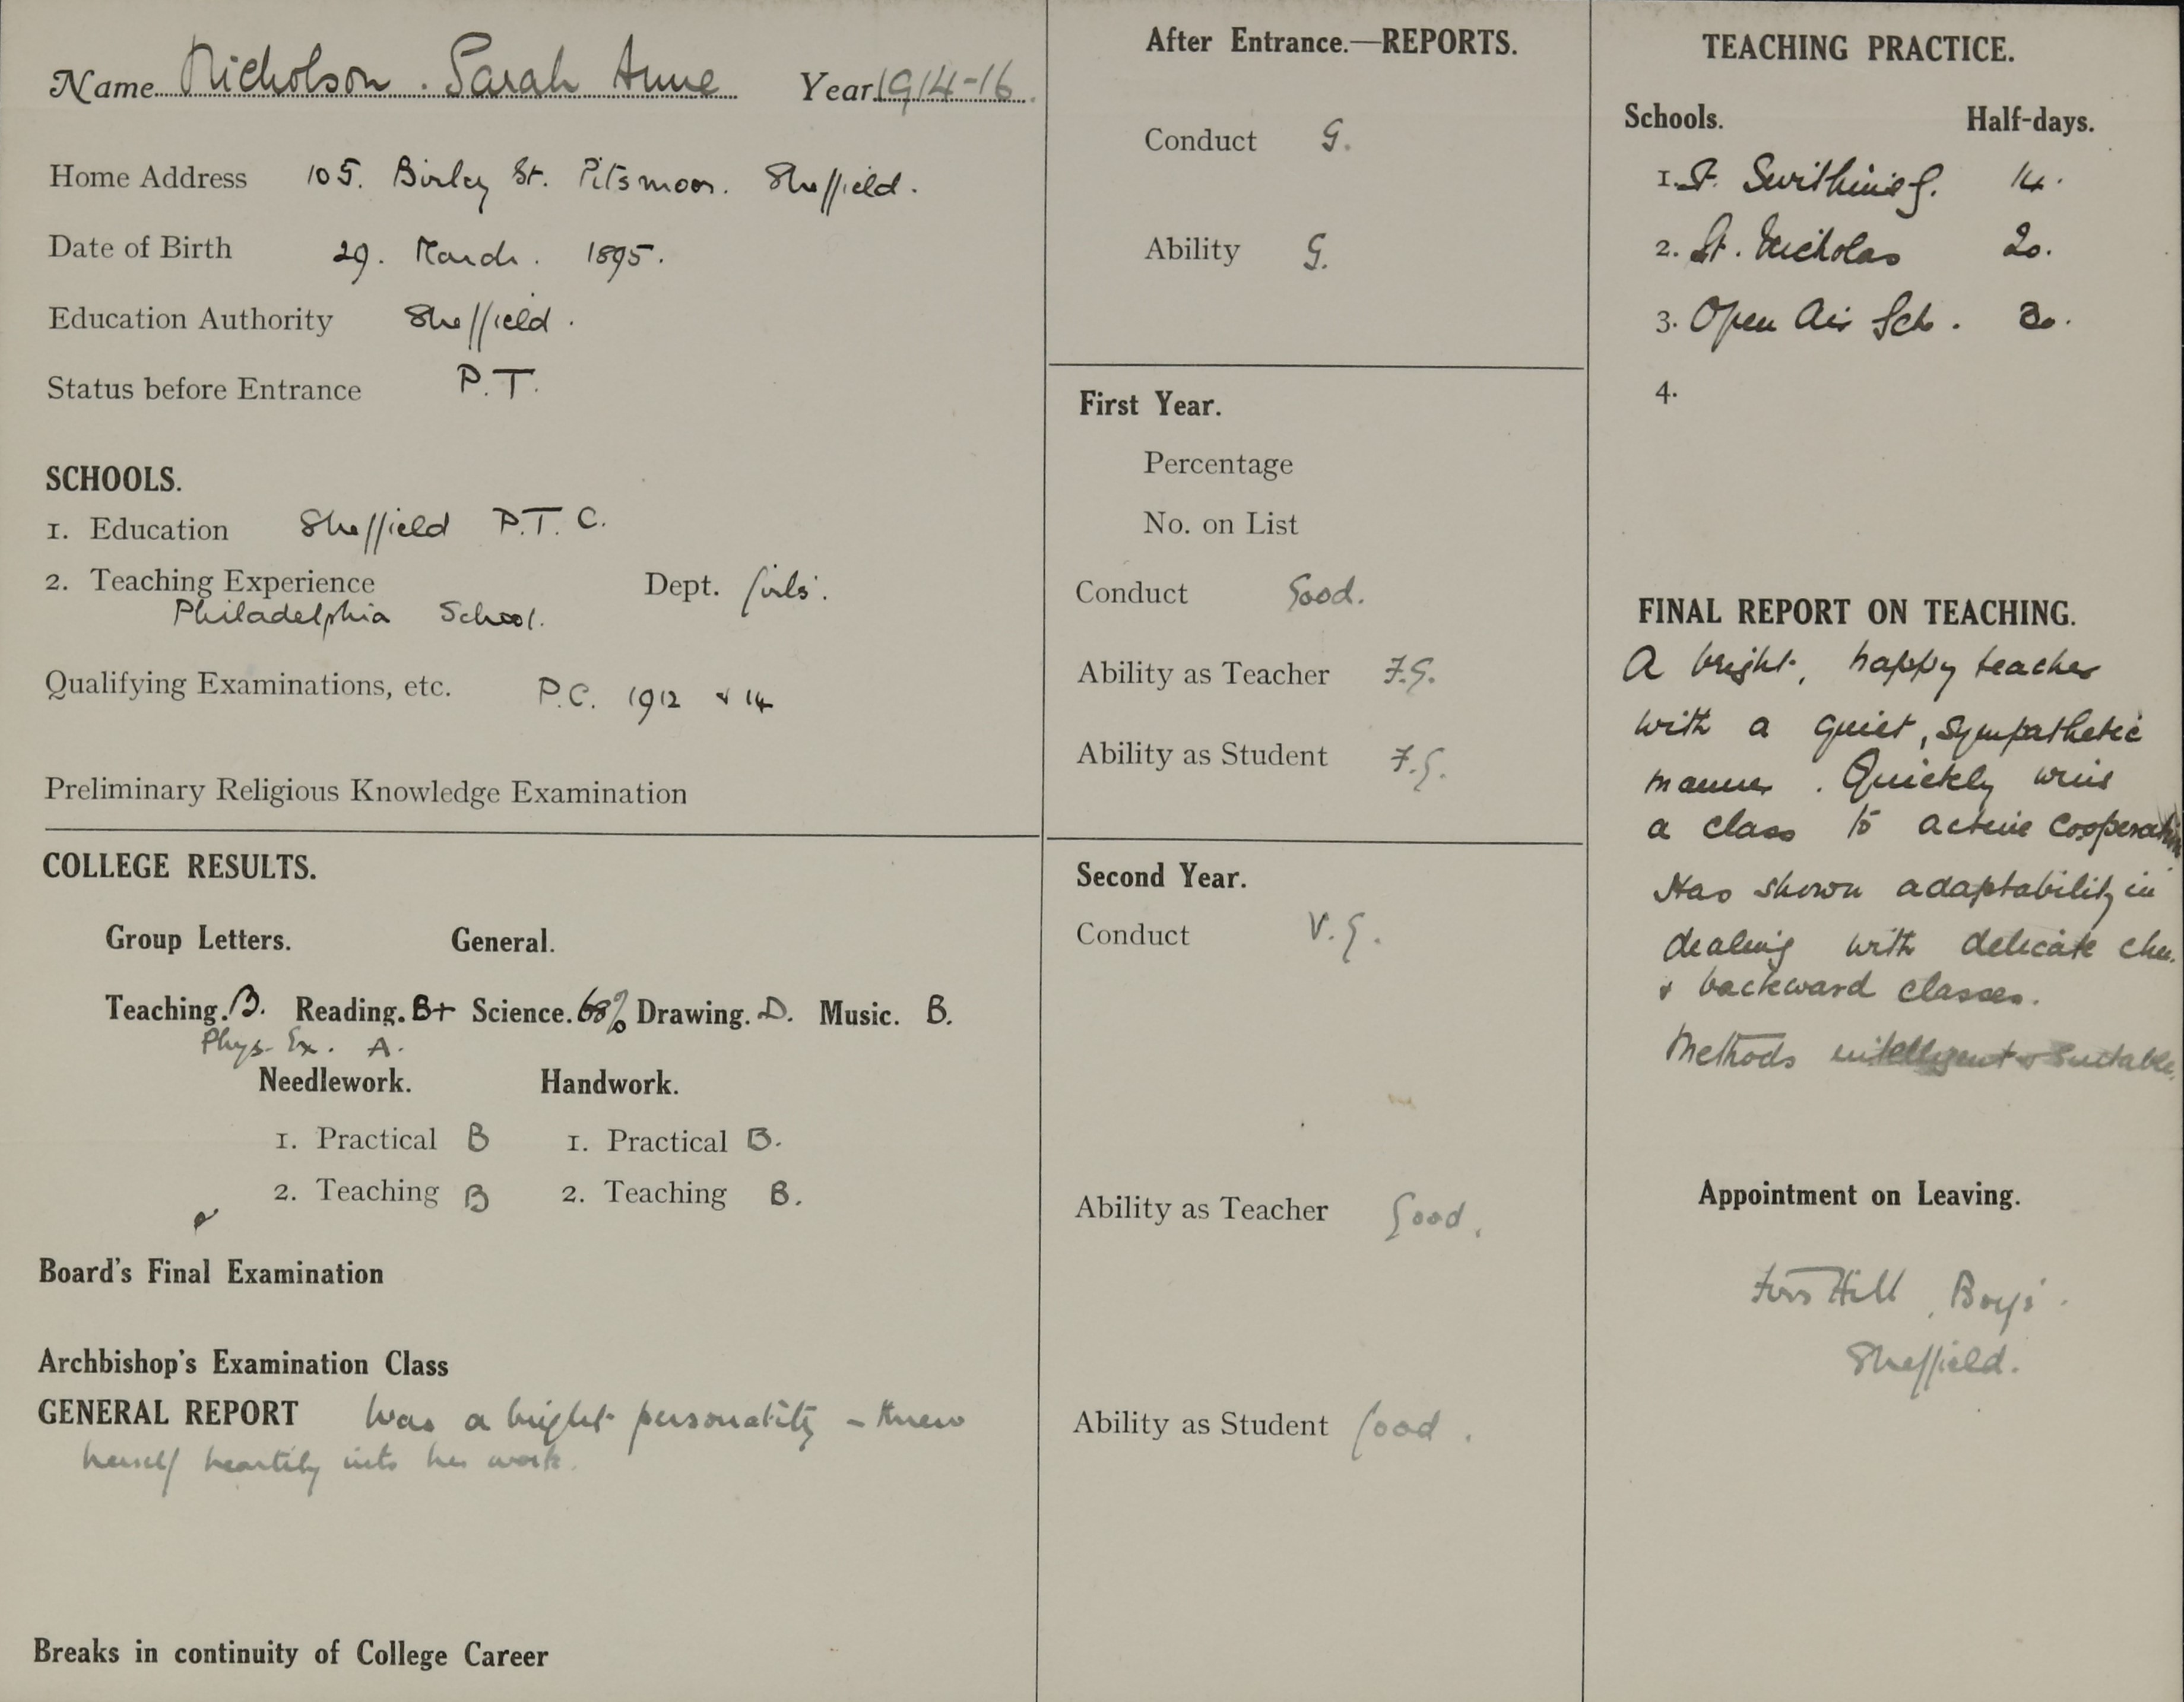 Name Nicholson. Sarah Anne Year 1914-16.
Home Address 105. Birley St. Pitsmoor. Sheffield.
Date of Birth 29. March. 1895.
Education Authority Sheffield.
Status before Entrance P.T.
SCHOOLS.
1. Education Sheffield P.T.C.
2. Teaching Experience Dept. Girls'.
Philadelphia School.
Qualifying Examinations, etc. P.C. 1912 & 14
Preliminary Religious Knowledge Examination
COLLEGE RESULTS.
Group Letters. General.
Teaching. B. Reading. B+ Science. 68% Drawing. D. Music. B.
Phys. Ex. A.
Needlework. Handwork.
1. Practical B 1. Practical B.
2. Teaching B 2. Teaching B.
Board's Final Examination
Archbishop's Examination Class
GENERAL REPORT Was a bright personality - threw
herself heartily into her work.
Breaks in continuity of College Career
After Entrance.—REPORTS.
Conduct G.
Ability G.
First Year.
Percentage
No. on List
Conduct Good.
Ability as Teacher F.G.
Ability as Student F.G.
Second Year.
Conduct V.G.
Ability as Teacher Good.
Ability as Student Good.
TEACHING PRACTICE.
Schools. Half-days.
1. St. Swithin's G. 14.
2. St. Nicholas 20.
3. Open Air Sch. 30.
4.
FINAL REPORT ON TEACHING.
A bright, happy teacher
with a quiet, sympathetic
manner. Quickly wins
a class to active cooperation
Has shown adaptability in
dealing with delicate chn.
& backward classes.
Methods intelligent & suitable.
Appointment on Leaving.
Hill, Boys'.
Sheffield.